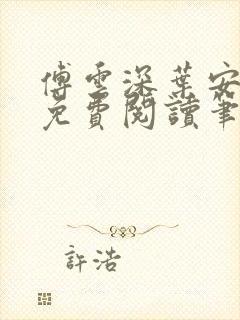 傅雲深葉安
免費閱讀筆
許浩